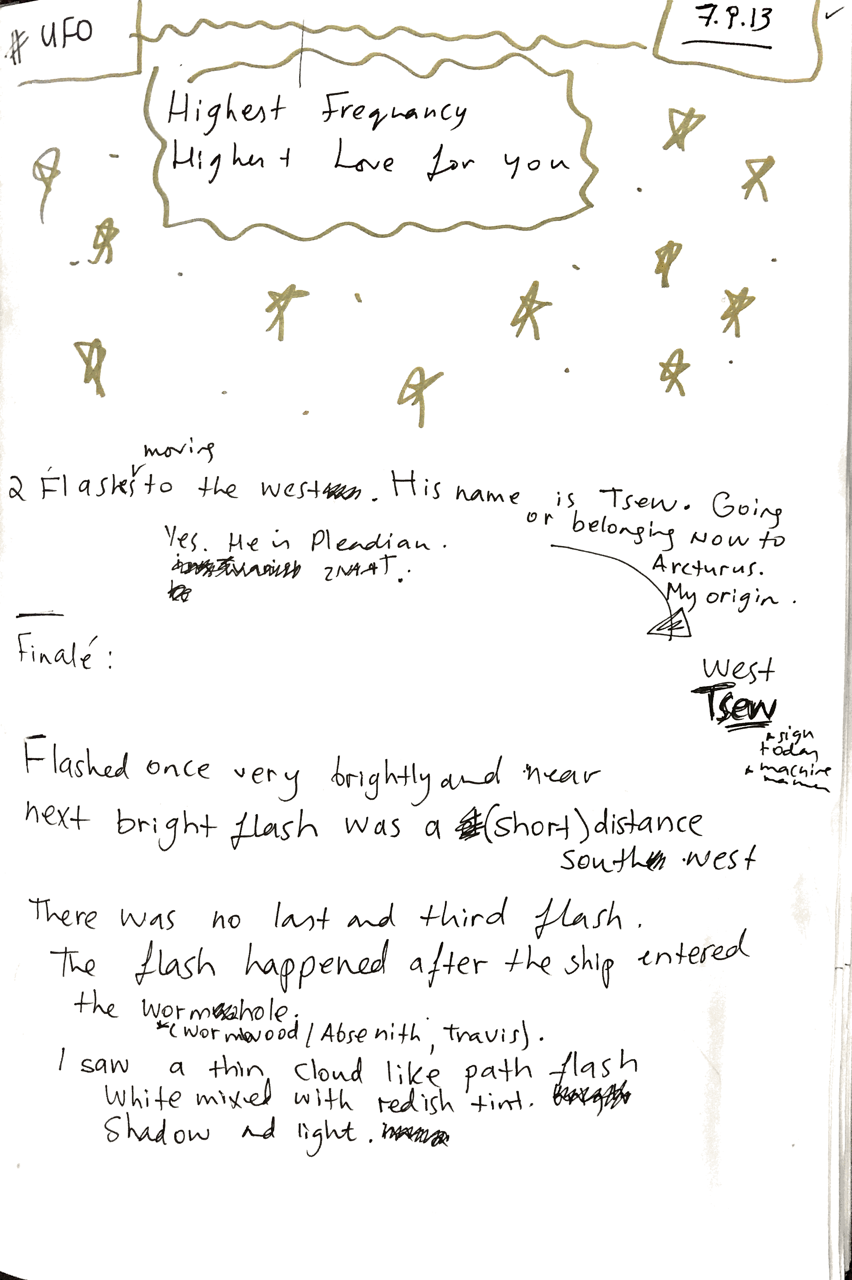 # UFO
7.9.13
Highest Frequancy
Highest Love for you
moving
2 Flashes to the west. His name is Tsew. Going
or belonging now to
Yes. He is Pleadian.
Arcturus.
My origin.
Finalé:
West
Tsew
sign
today
machine
Flashed once very brightly and near
next bright flash was a (short) distance
south west
There was no last and third flash.
The flash happened after the ship entered
the wormhole.
*(wormwood / Absenith, Travis).
I saw a thin cloud like path flash
White mixed with redish tint.
Shadow and light.